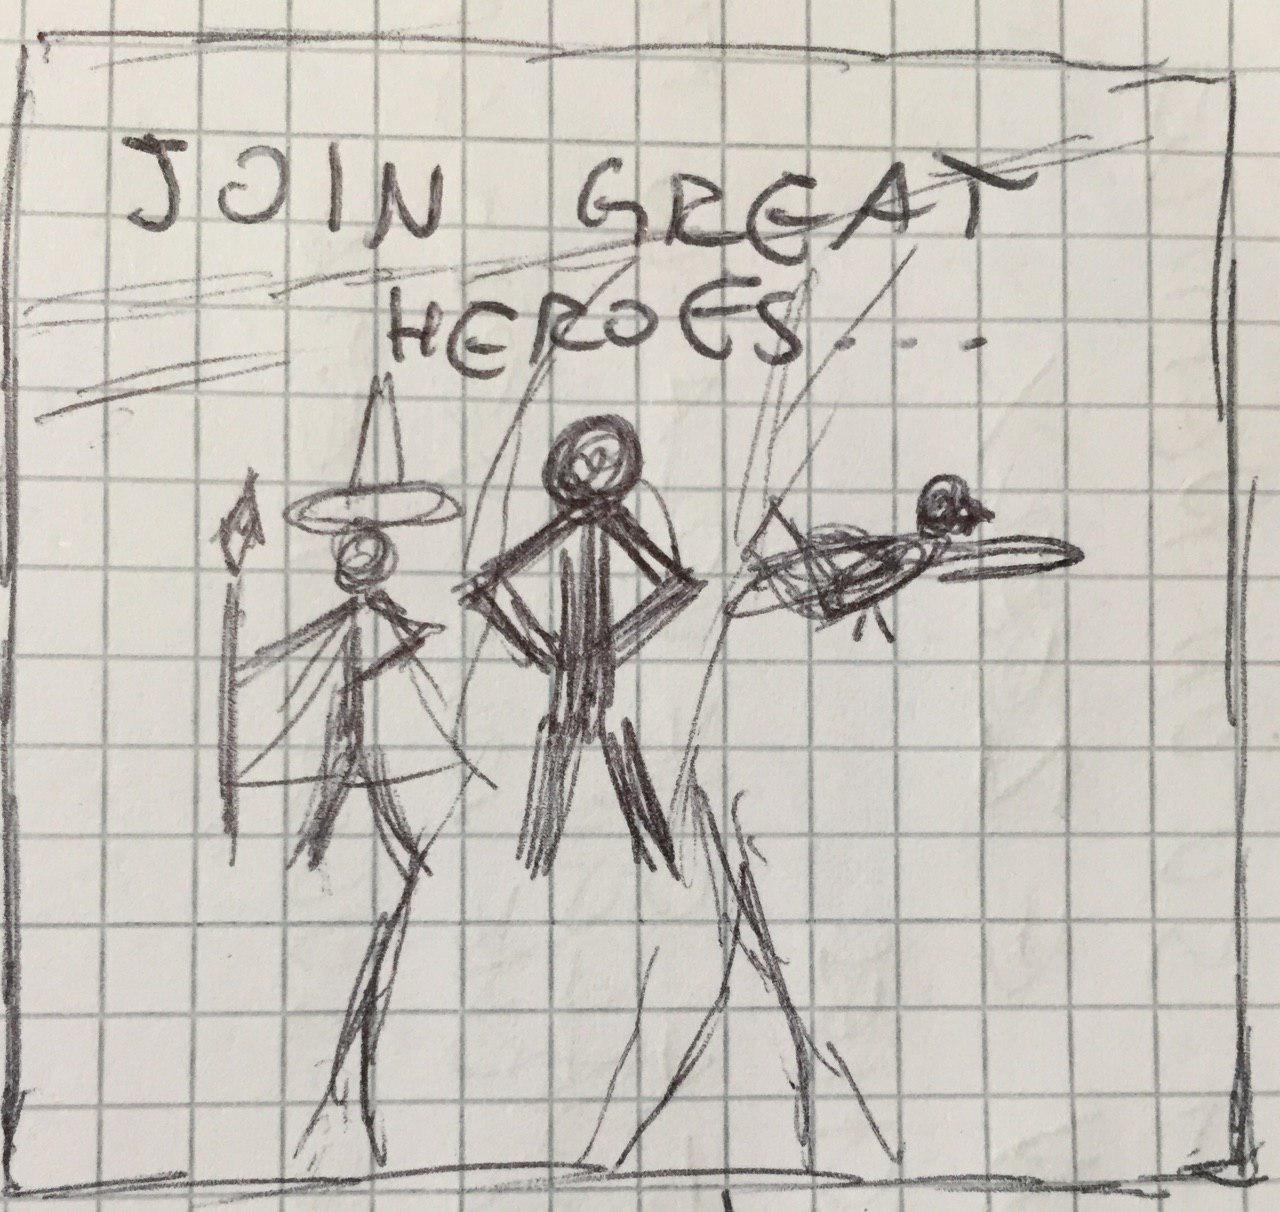 JOIN GREAT
HEROES....